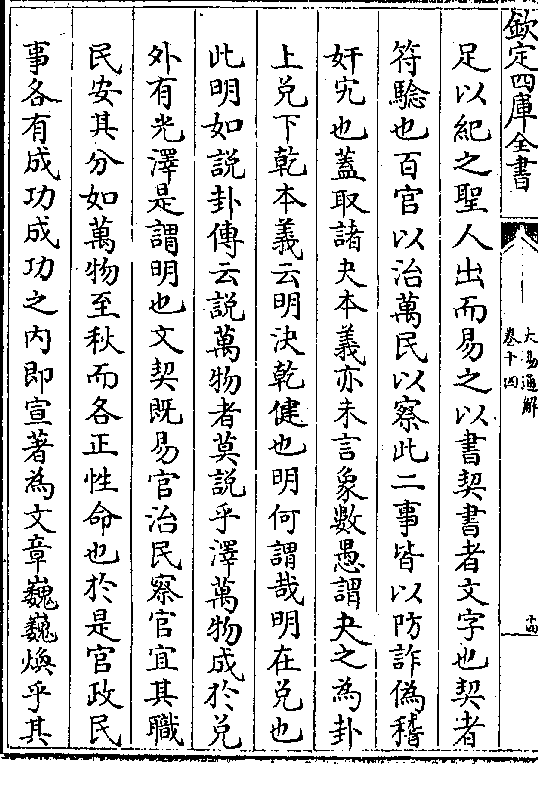 欽定四庫全書
大易通解
卷十四
十四
足以紀之聖人出而易之以書契書者文字也契者
符驗也百官以治萬民以察此二事皆以防詐偽稽
奸宄也蓋取諸夬本義亦未言象數愚謂夬之為卦
上兑下乾本義云明決乾健也明何謂哉明在兑也
此明如説卦傳云説萬物者莫説乎澤萬物成於兑
外有光澤是謂明也文契既易官治民察官宜其職
民安其分如萬物至秋而各正性命也於是官政民
事各有成功成功之内即宣著為文章巍巍煥乎其